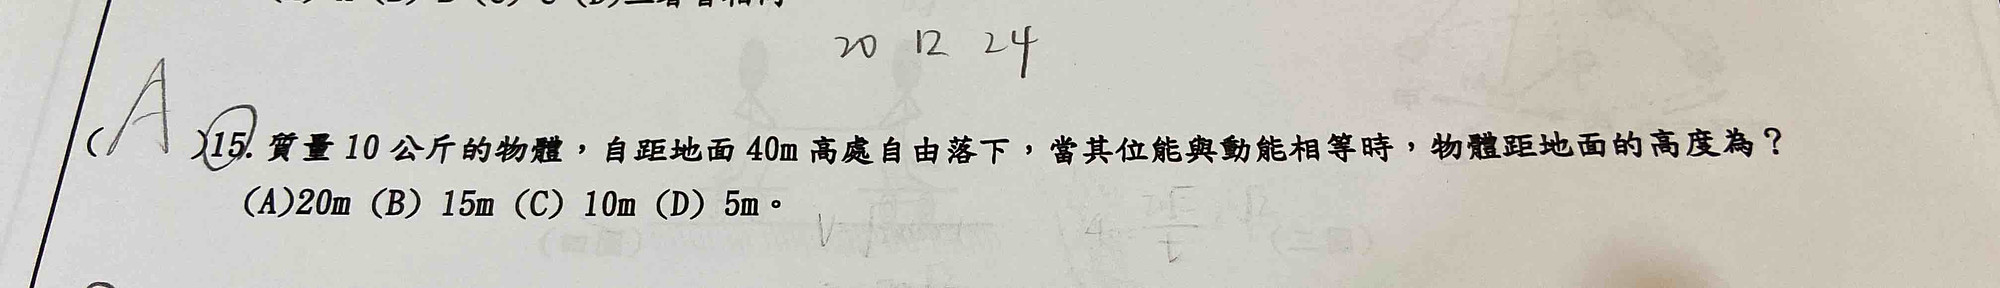 20 12 24
(A)15. 質量 10 公斤的物體，自距地面 40m 高處自由落下，當其位能與動能相等時，物體距地面的高度為？
(A)20m (B) 15m (C) 10m (D) 5m。